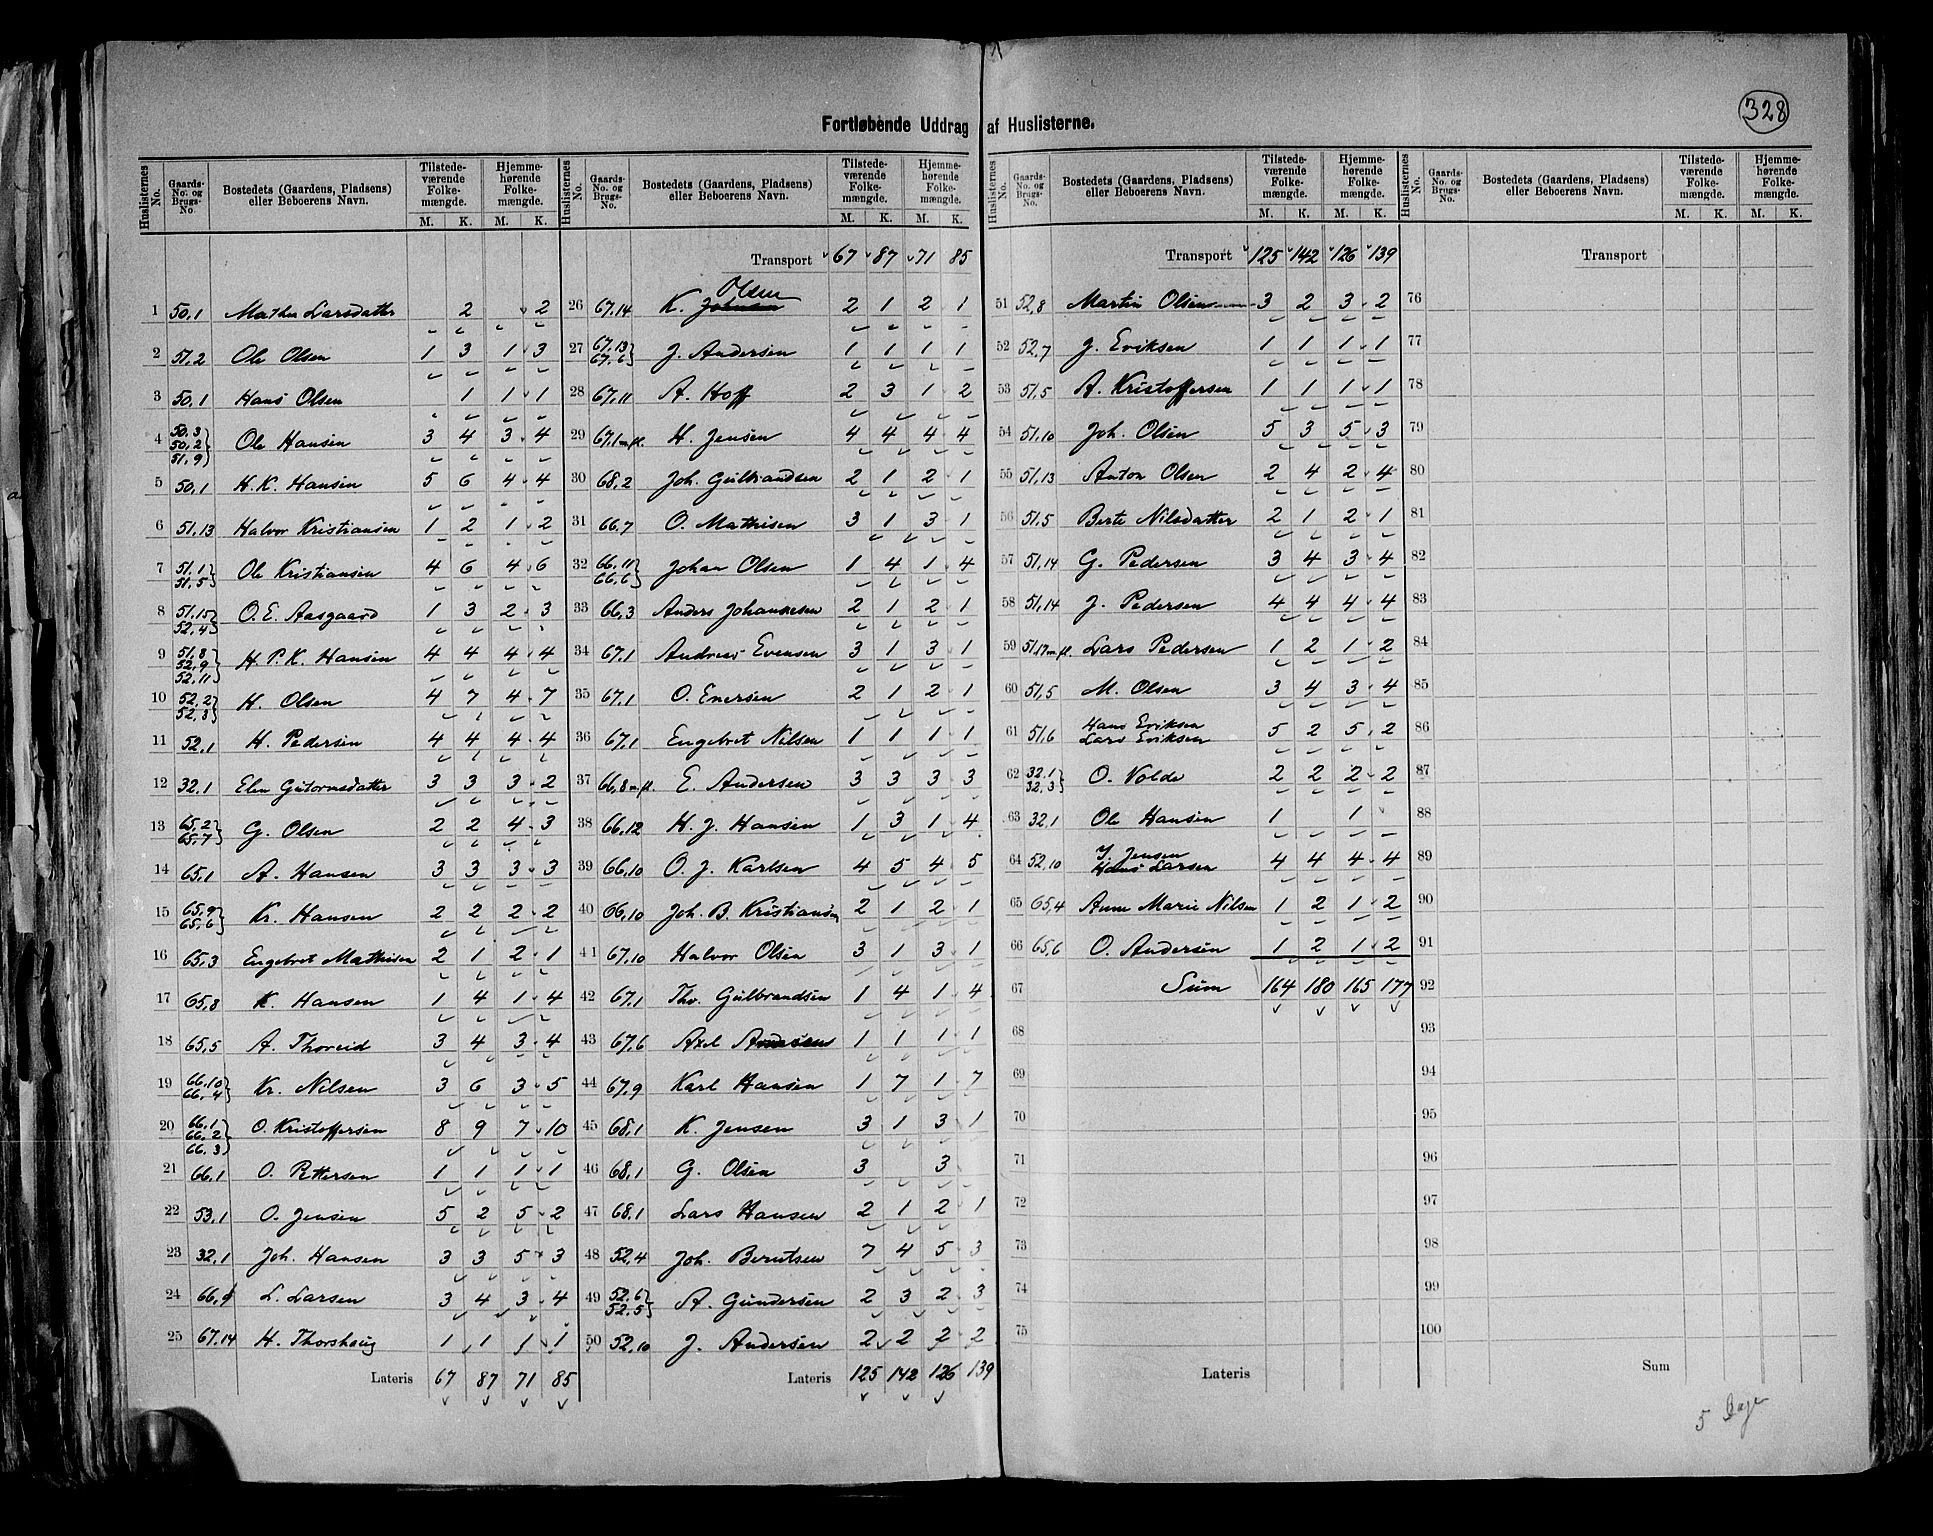 328
Fortløbende Uddrag af Huslisterne.
Huslisternes No. Gaards-No. og Brugs-No. Bostedets (Gaardens, Pladsens) eller Beboerens Navn. Tilstedeværende Folkemængde. M. K. Hjemmehørende Folkemængde. M. K.
1 50,1 Mathea Larsdatter 2 2
2 51,2 Ole Olsen 1 3 1 3
3 50,1 Hans Olsen 1 1 1
4 50,3 50,2 51,9 Ole Hansen 3 4 3 4
5 50,1 H. K. Hansen 5 6 4 4
6 51,13 Halvor Kristiansen 1 2 1 2
7 51,1 51,5 Ole Kristiansen 4 6 4 6
8 51,15 52,4 O. E. Aasgaard 1 3 2 3
9 51,8 52,9 52,11 H. P. K. Hansen 4 4 4 4
10 52,2 52,3 H. Olsen 4 7 4 7
11 52,1 H. Pedersen 4 4 4 4
12 32,1 Elen Gutormsdatter 3 3 3 2
13 65,2 65,7 G. Olsen 2 2 4 3
14 65,1 A. Hansen 3 3 3 3
15 65,9 65,6 Kr. Hansen 2 2 2 2
16 65,3 Engebret Mathisen 2 1 2 1
17 65,8 K. Hansen 1 4 1 4
18 65,5 A. Thoreid 3 4 3 4
19 66,10 66,4 Kr. Nilsen 3 6 3 5
20 66,1 66,2 66,3 O. Kristoffersen 8 9 7 10
21 66,1 O. Pettersen 1 1 1 1
22 53,1 O. Jensen 5 2 5 2
23 32,1 Joh. Hansen 3 3 5 3
24 66,9 L. Larsen 3 4 3 4
25 67,14 H. Thorshaug 1 1 1 1
Lateris 67 87 71 85
Huslisternes No. Gaards-No. og Brugs-No. Bostedets (Gaardens, Pladsens) eller Beboerens Navn. Tilstedeværende Folkemængde. M. K. Hjemmehørende Folkemængde. M. K.
Transport 67 87 71 85
26 67,14 K. Olsen 2 1 2 1
27 67,13 67,6 J. Andersen 1 1 1 1
28 67,11 A. Hoff 2 3 1 2
29 67,1 m fl. H. Jensen 4 4 4 4
30 68,2 Joh. Gulbrandsen 2 1 2 1
31 66,7 O. Mathisen 3 1 3 1
32 66,11 66,6 Johan Olsen 1 4 1 4
33 66,3 Anders Johannesen 2 1 2 1
34 67,1 Andreas Evensen 3 1 3 1
35 67,1 O. Enersen 2 1 2 1
36 67,1 Engebret Nilsen 1 1 1 1
37 66,8 m fl. E. Andersen 3 3 3 3
38 66,12 H. J. Hansen 1 3 1 4
39 66,10 O. J. Karlsen 4 5 4 5
40 66,10 Joh. B. Kristiansen 2 1 2 1
41 67,10 Halvor Olsen 3 1 3 1
42 67,1 Thv. Gulbrandsen 1 4 1 4
43 67,6 Axel 1 1 1 1
44 67,9 Karl Hansen 1 7 1 7
45 68,1 K. Jensen 3 1 3 1
46 68,1 G. Olsen 3 3
47 68,1 Lars Hansen 2 1 2 1
48 52,4 Joh. Berntsen 7 4 5 3
49 52,6 52,5 A. Gundersen 2 3 2 3
50 52,10 J. Andersen 2 2 2 2
Lateris 125 142 126 139
Huslisternes No. Gaards-No. og Brugs-No. Bostedets (Gaardens, Pladsens) eller Beboerens Navn. Tilstedeværende Folkemængde. M. K. Hjemmehørende Folkemængde. M. K.
Transport 125 142 126 139
51 52,8 Martin Olsen 3 2 3 2
52 52,7 J. Eriksen 1 1 1 1
53 51,5 A. Kristoffersen 1 1 1 1
54 51,10 Joh. Olsen 5 3 5 3
55 51,13 Anton Olsen 2 4 2 4
56 51,5 Berte Nilsdatter 2 1 2 1
57 51,14 G. Pedersen 3 4 3 4
58 51,14 J. Pedersen 4 4 4 4
59 51,17 m fl. Lars Pedersen 1 2 1 2
60 51,5 M. Olsen 3 4 3 4
61 51,6 Hans Eriksen Lars Eriksen 5 2 5 2
62 32,1 32,3 O. Volde 2 2 2 2
63 32,1 Ole Hansen 1 1
64 52,10 Jensen Hans Larsen 4 4 4 4
65 65,4 Anne Marie Nilsen 1 2 1 2
66 65,6 O. Andersen 1 2 1 2
67 Sum 164 180 165 177
68
69
70
71
72
73
74
75
Lateris
Huslisternes No. Gaards-No. og Brugs-No. Bostedets (Gaardens, Pladsens) eller Beboerens Navn. Tilstedeværende Folkemængde. M. K. Hjemmehørende Folkemængde. M. K.
Transport
76
77
78
79
80
81
82
83
84
85
86
87
88
89
90
91
92
93
94
95
96
97
98
99
100
Sum
5 Dage